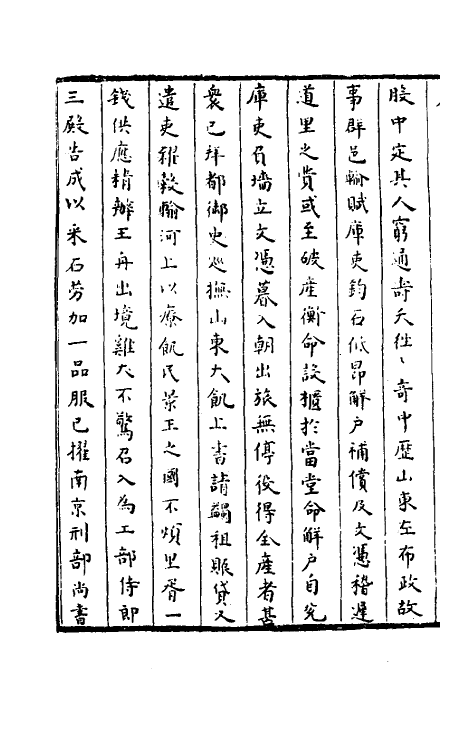 股中定其人窮通壽夭往〻奇中歷山東左布政故
事群邑輸賦庫吏鈞石低昂解户補償及文憑稽遲
道里之費或至破產衡命設櫃於當堂命解户自兌
庫吏召墻立文憑暮入朝出旅無停役得全產者甚
衆已拜都御史巡撫山東大飢上書請蠲租賑貸又
遣吏糴穀輸河上以療飢民榮王之國不煩里胥一
錢供應精辦王舟出境雞犬不驚召入為工部侍郎
三殿告成以采石勞加一品服已擢南京刑部尚書